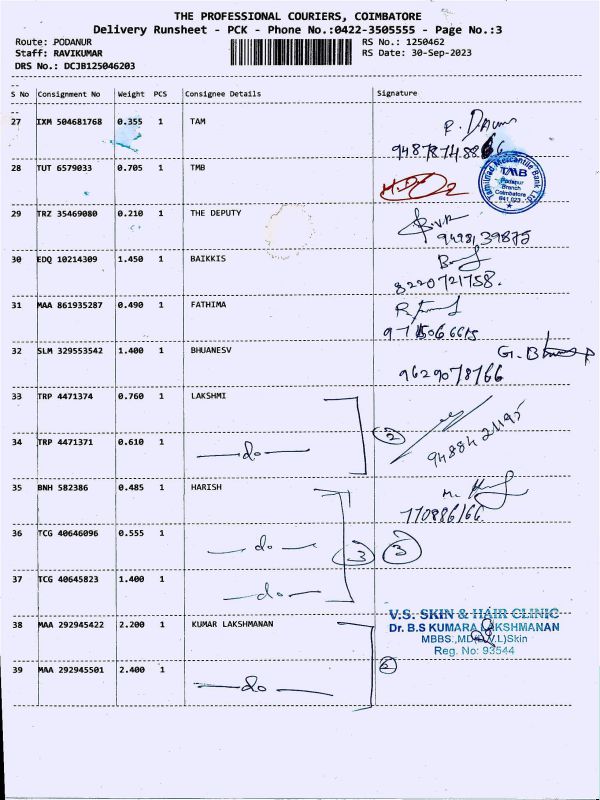 THE PROFESSIONAL COURIERS, COIMBATORE
Delivery Runsheet - PCK - Phone No.:0422-3505555 - Page No.:3
Route: PODANUR RS No.: 1250462
Staff: RAVIKUMAR RS Date: 30-Sep-2023
DRS No.: DCJB125046203
S No Consignment No Weight PCS Consignee Details Signature
27 IXM 504681768 0.355 1 TAM
28 TUT 6579033 0.705 1 TMB
Tamilnad Mercantile Bank Ltd.
TMB
Podanur
Branch
Coimbatore
641 023
29 TRZ 35469080 0.210 1 THE DEPUTY
30 EDQ 10214309 1.450 1 BAIKKIS
8220721758.
31 MAA 861935287 0.490 1 FATHIMA
32 SLM 329553542 1.400 1 BHUANESV
9629078766
33 TRP 4471374 0.760 1 LAKSHMI
34 TRP 4471371 0.610 1 -do- 2
9488421195
35 BNH 582386 0.485 1 HARISH
36 TCG 40646096 0.555 1 -do- 3 3
37 TCG 40645823 1.400 1 -do-
38 MAA 292945422 2.200 1 KUMAR LAKSHMANAN
V.S. SKIN & HAIR CLINIC
Dr. B.S KUMARA LAKSHMANAN
MBBS.,MD(D.V.L)Skin
Reg. No: 93544
39 MAA 292945501 2.400 1 -do-